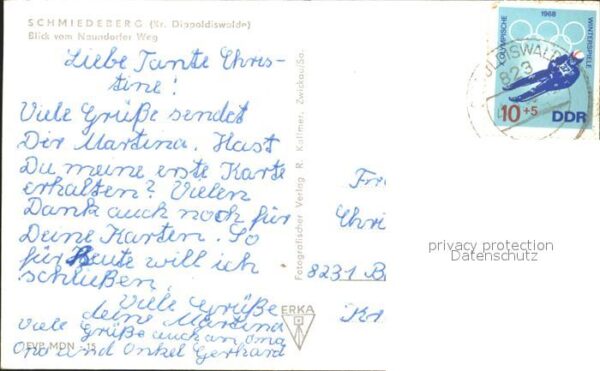 SCHMIEDEBERG (Kr. Dippoldiswalde)
Blick vom Naundorfer Weg
Liebe Tante Chris-
tine!
Viele Grüße sendet
Dir Martina. Hast
Du meine erste Karte
erhalten? Vielen
Dank auch noch für
Deine Karten. So
für Heute will ich
schließen.
Viele Grüße
deine Martina
Viele Grüße auch an Oma
Ona und Onkel Gerhard
EVP MDN -.15
Fotografischer Verlag R. Kallmer, Zwickau/Sa.
ERKA
X. OLYMPISCHE
1968
WINTERSPIELE
10+5
DDR
DISWALD
823
Fr
Chri
8231 B
Kr
privacy protection
Datenschutz